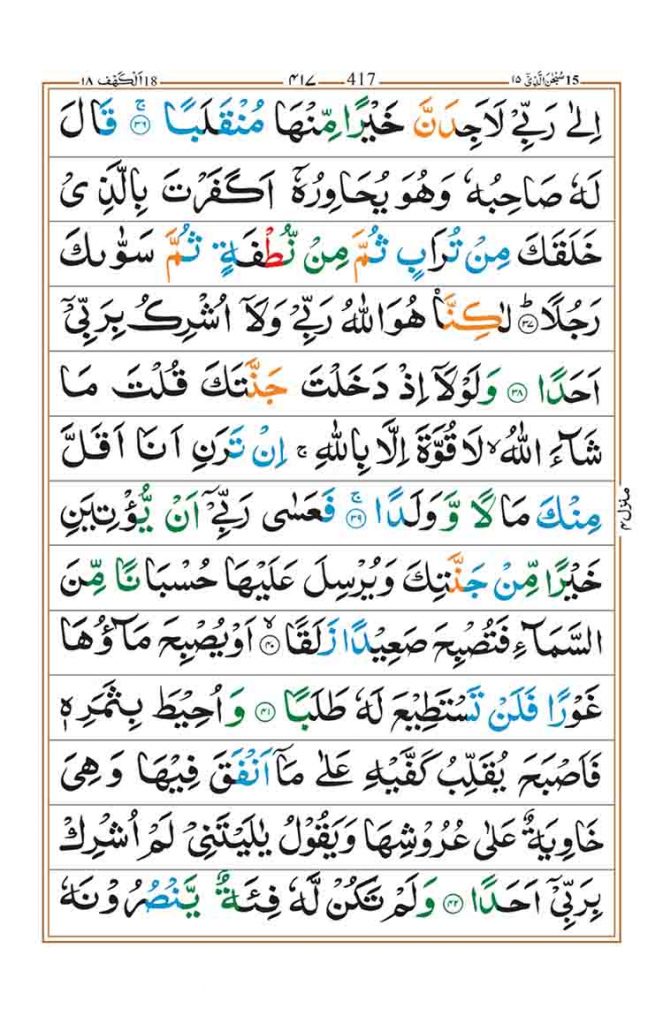 ١٨ اَلْكَهْف 18 ٤١٧ 417 سُبْحٰنَ الَّذِیْٓ ١٥ 15
اِلٰى رَبِّیْ لَاَجِدَنَّ خَیْرًا مِّنْهَا مُنْقَلَبًا ۚ ﴿۳۶﴾ قَالَ
لَهٗ صَاحِبُهٗ وَهُوَ یُحَاوِرُهٗۤ اَكَفَرْتَ بِالَّذِیْ
خَلَقَكَ مِنْ تُرَابٍ ثُمَّ مِنْ نُّطْفَةٍ ثُمَّ سَوّٰىكَ
رَجُلًا ؕ ﴿۳۷﴾ لٰكِنَّا۠ هُوَ اللّٰهُ رَبِّیْ وَلَاۤ اُشْرِكُ بِرَبِّیْۤ
اَحَدًا ﴿۳۸﴾ وَلَوْلَاۤ اِذْ دَخَلْتَ جَنَّتَكَ قُلْتَ مَا
شَآءَ اللّٰهُ ۙ لَا قُوَّةَ اِلَّا بِاللّٰهِ ۚ اِنْ تَرَنِ اَنَا اَقَلَّ
مِنْكَ مَالًا وَّوَلَدًا ۚ ﴿۳۹﴾ فَعَسٰى رَبِّیْۤ اَنْ یُّؤْتِیَنِ
خَیْرًا مِّنْ جَنَّتِكَ وَیُرْسِلَ عَلَیْهَا حُسْبَانًا مِّنَ
السَّمَآءِ فَتُصْبِحَ صَعِیْدًا زَلَقًا ۙ ﴿۴۰﴾ اَوْ یُصْبِحَ مَآؤُهَا
غَوْرًا فَلَنْ تَسْتَطِیْعَ لَهٗ طَلَبًا ﴿۴۱﴾ وَاُحِیْطَ بِثَمَرِهٖ
فَاَصْبَحَ یُقَلِّبُ كَفَّیْهِ عَلٰى مَاۤ اَنْفَقَ فِیْهَا وَهِیَ
خَاوِیَةٌ عَلٰى عُرُوْشِهَا وَیَقُوْلُ یٰلَیْتَنِیْ لَمْ اُشْرِكْ
بِرَبِّیْۤ اَحَدًا ﴿۴۲﴾ وَلَمْ تَكُنْ لَّهٗ فِئَةٌ یَّنْصُرُوْنَهٗ
منزل ۴